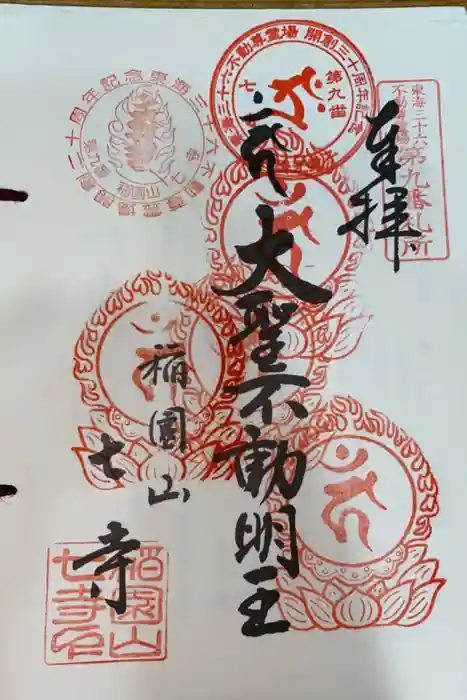 奉拝
東海三十六
不動尊霊場
第九番札所
東海三十六不動尊霊場 開創三十周年記念
第九番
七寺
大聖不動明王
東海三十六不動尊霊場開創二十周年記念
稲園山
七寺
稲園山
七寺印